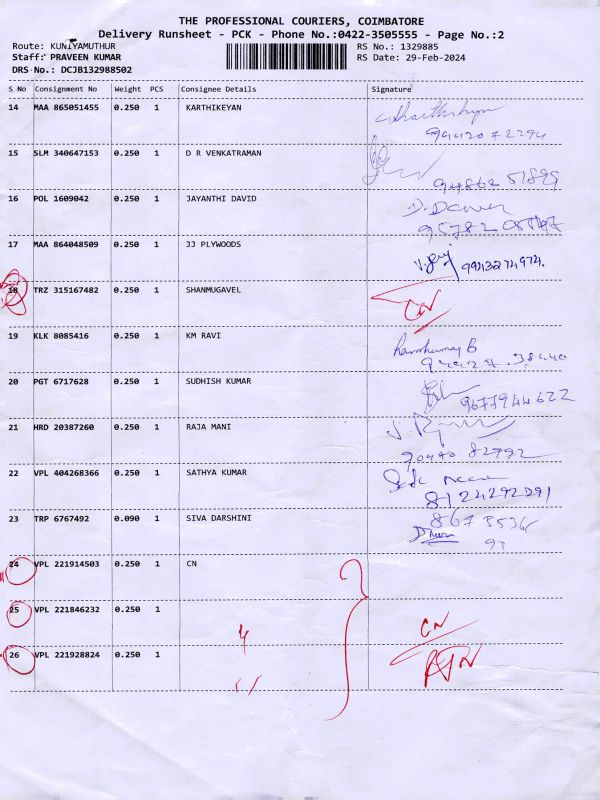 THE PROFESSIONAL COURIERS, COIMBATORE
Delivery Runsheet - PCK - Phone No.:0422-3505555 - Page No.:2
Route: KUNIYAMUTHUR RS No.: 1329885
Staff: PRAVEEN KUMAR RS Date: 29-Feb-2024
DRS No.: DCJB132988502
S No Consignment No Weight PCS Consignee Details Signature
14 MAA 865051455 0.250 1 KARTHIKEYAN
15 SLM 340647153 0.250 1 D R VENKATRAMAN
16 POL 1609042 0.250 1 JAYANTHI DAVID
17 MAA 864048509 0.250 1 JJ PLYWOODS
9943274974.
18 TRZ 315167482 0.250 1 SHANMUGAVEL CN
19 KLK 8085416 0.250 1 KM RAVI
20 PGT 6717628 0.250 1 SUDHISH KUMAR
9677944622
21 HRD 20387260 0.250 1 RAJA MANI
90470 82992
22 VPL 404268366 0.250 1 SATHYA KUMAR
8124292291
23 TRP 6767492 0.090 1 SIVA DARSHINI
24 VPL 221914503 0.250 1 CN
25 VPL 221846232 0.250 1
CN
26 VPL 221928824 0.250 1